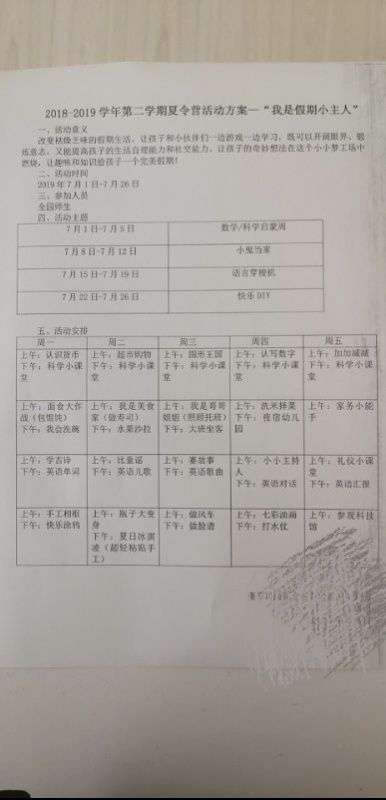 2018-2019学年第二学期夏令营活动方案—“我是假期小主人”
一、活动意义
改变枯燥乏味的假期生活，让孩子和小伙伴们一边游戏一边学习，既可以开阔眼界、锻
炼意志，又能提高孩子的生活自理能力和社交能力，让孩子的奇妙想法在这个小小梦工场中
燃烧，让趣味和知识给孩子一个完美假期！
二、活动时间
2019年7月1日-7月26日
三、参加人员
全园师生
四、活动主题
7月1日-7月5日 数学/科学启蒙周
7月8日-7月12日 小鬼当家
7月15日-7月19日 语言穿梭机
7月22日-7月26日 快乐DIY
五、活动安排
周一 周二 周三 周四 周五
上午：认识货币 上午：超市购物 上午：图形王国 上午：认写数字 上午：加加减减
下午：科学小课 下午：科学小课 下午：科学小课 下午：科学小课 下午：科学小课
堂 堂 堂 堂 堂
上午：面食大作 上午：我是美食 上午：我是哥哥 上午：洗米择菜 上午：家务小能
战（包馄饨） 家（做寿司） 姐姐（照顾托班） 下午：夜宿幼儿 手
下午：我会洗碗 下午：水果沙拉 下午：大班坐客 园
上午：学古诗 上午：比童谣 上午：赛故事 上午：小小主持 上午：礼仪小课
下午：英语单词 下午：英语儿歌 下午：英语歌曲 人 堂
下午：英语对话 下午：英语汇报
上午：手工相框 上午：瓶子大变 上午：做风车 上午：七彩油画 上午：参观科技
下午：快乐涂鸦 身 下午：做脸谱 下午：打水仗 馆
下午：夏日冰淇
凌（超轻粘贴手
工）